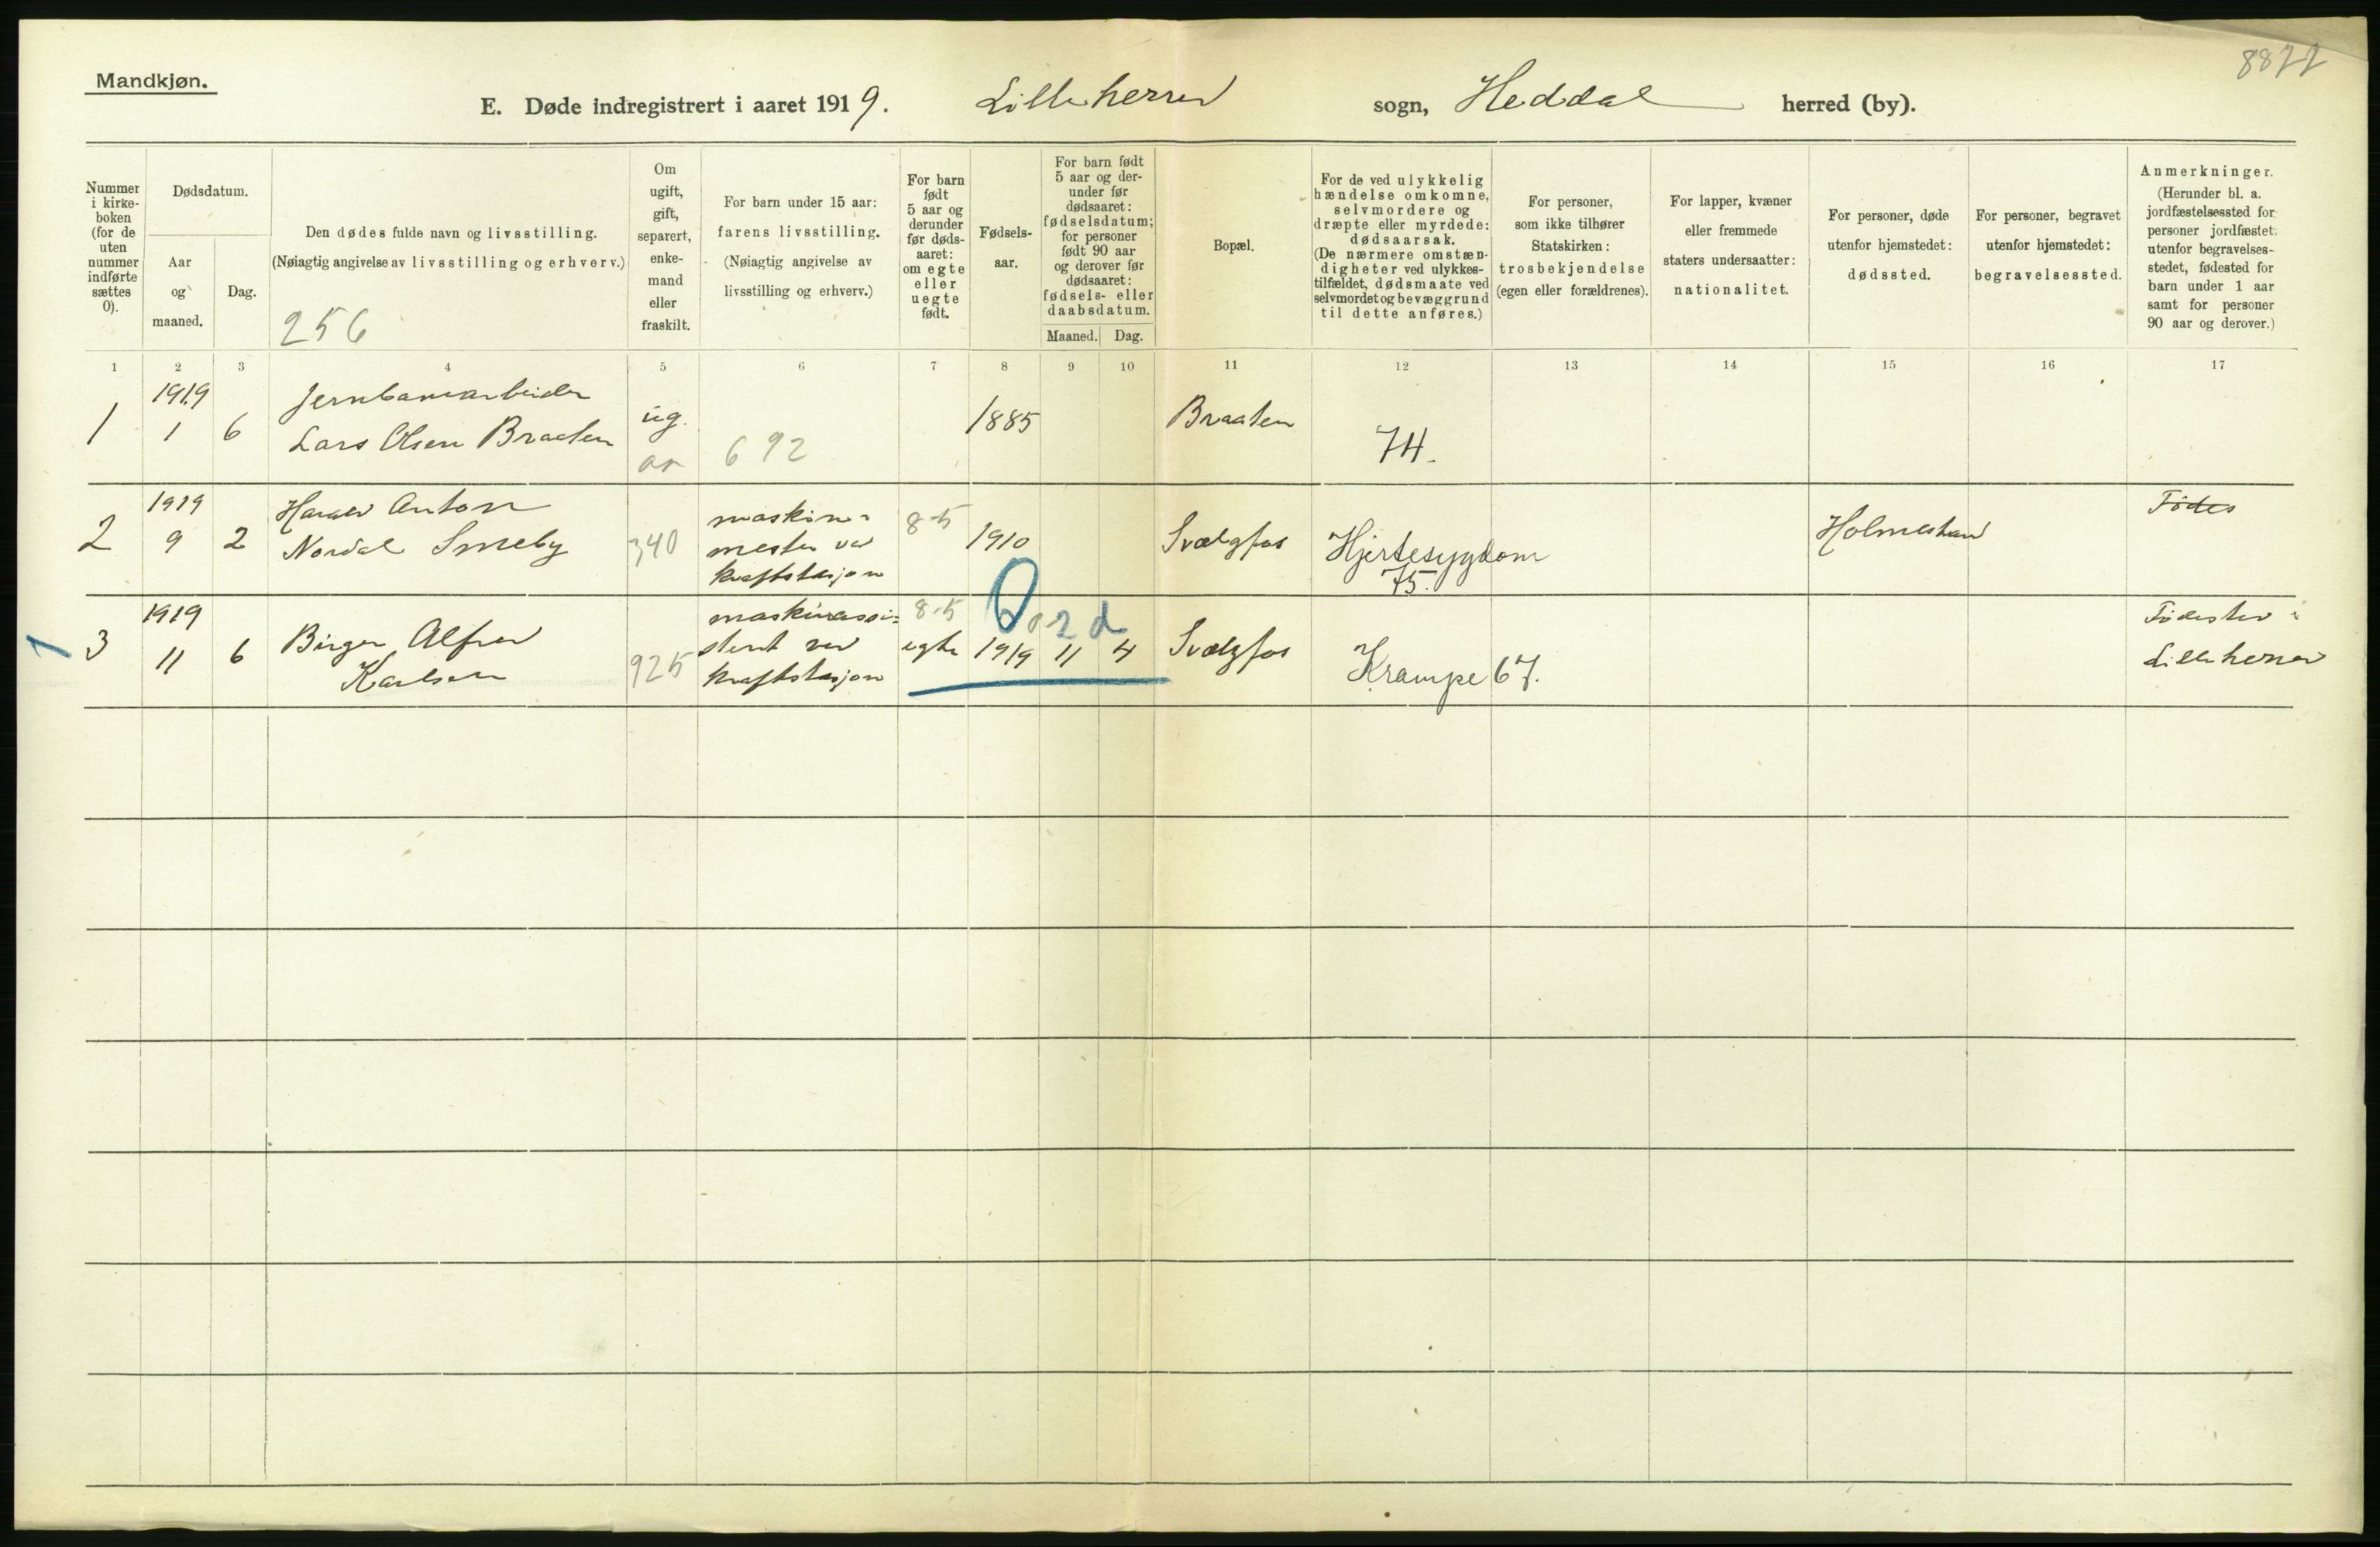 8877
Mandkjøn.
E. Døde indregistrert i aaret 1919. Lilleherred sogn, Heddal herred (by).
Nummer i kirke-boken (for de uten nummer indførte sættes 0).
Dødsdatum.
Aar og maaned.
Dag.
Den dødes fulde navn og livsstilling.
(Nøiagtig angivelse av livsstilling og erhverv.)
256
Om ugift, gift, separert, enke-mand eller fraskilt.
For barn under 15 aar:
farens livsstilling.
(Nøiagtig angivelse av
livsstilling og erhverv.)
For barn født 5 aar og derunder før døds-aaret: om egte eller uegte født.
Fødsels-aar.
For barn født 5 aar og der-under før dødsaaret: fødselsdatum; for personer født 90 aar og derover før dødsaaret: fødsels- eller daabsdatum.
Maaned. Dag.
Bopæl.
For de ved ulykkelig hændelse omkomne, selvmordere og dræpte eller myrdede: dødsaarsak.
(De nærmere omstæn-digheter ved ulykkes-tilfældet, dødsmaate ved selvmordet og bevæggrund til dette anføres.)
For personer, som ikke tilhører Statskirken: trosbekjendelse (egen eller forældrenes).
For lapper, kvæner eller fremmede staters undersaatter: nationalitet.
For personer, døde utenfor hjemstedet: dødssted.
For personer, begravet utenfor hjemstedet: begravelsessted.
Anmerkninger.
(Herunder bl. a. jordfæstelsessted for personer jordfæstet utenfor begravelses-stedet, fødested for barn under 1 aar samt for personer 90 aar og derover.)
1 2 3 4 5 6 7 8 9 10 11 12 13 14 15 16 17
1919 Jernbanearbeider
1 1 6 Lars Olsen Braaten ug. 1885 Braaten 74.
ar 692
1919 Harald Anton maskin-
2 9 2 Nordal Smeby 340 mester ved 8-5 1910 Svælgfos Hjertesygdom Holmestrand Födes
kraftstasjon 75.
1919 maskinassi- 8-5 0. 2 d
1 3 11 6 Birger Alfred 925 stent ved egte 1919 11 4 Svælgfos Krampe 67. Födested i
Karlsen kraftstasjon Lilleherred